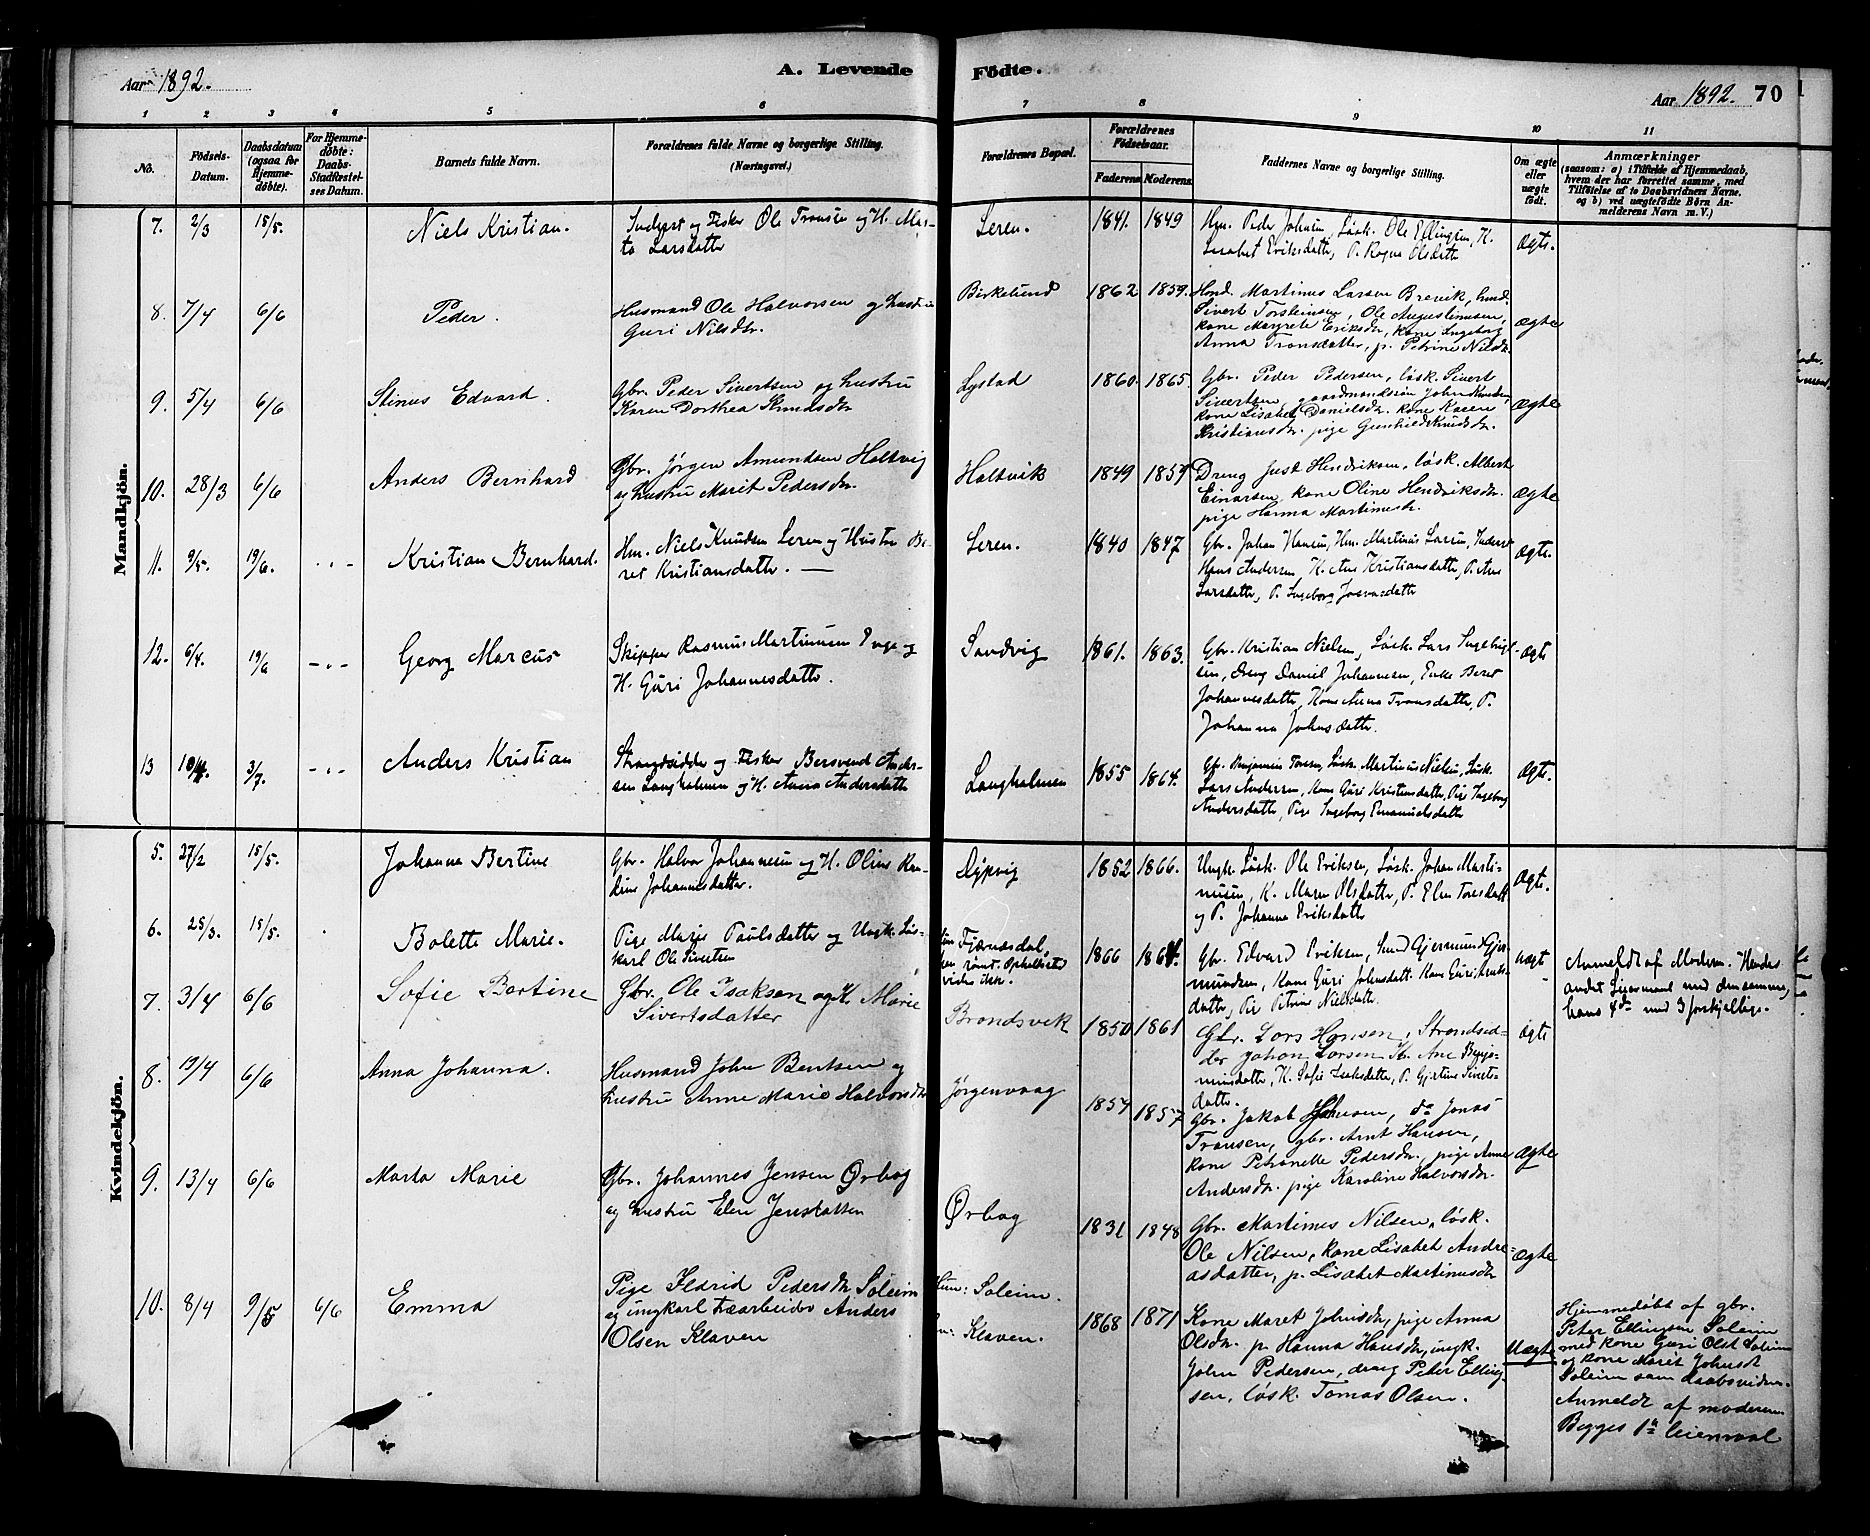 Aar 1892.
A. Levende Födte.
Aar 1892. 70
1 2 3 4 5 6 7 8 9 10 11
No.
Födsels-
Datum.
Daabsdatum
(ogsaa for
Hjemme-
døbte).
For Hjemme-
døbte:
Daabs-
Stadfæstel-
ses Datum.
Barnets fulde Navn.
Forældrenes fulde Navne og borgerlige Stilling.
(Næringsvei.)
Forældrenes Bopæl.
Forældrenes
Födselsaar.
Faderens Moderens
Faddernes Navne og borgerlige Stilling.
Om ægte
eller
uægte
født.
Anmærkninger
(saasom: a) i Tilfælde af Hjemmedaab,
hvem der har forrettet samme, med
Tilføielse af to Daabsvidners Navne,
og b) ved uægtefødte Børn An-
melderens Navn m. V.)
Mandkjön.
7. 2/3 15/5. Niels Kristian.
Inderst og Fisker Ole Tronsen og H. Mar-
ta Larsdatter
Leren. 1841. 1849
Hm. Peder Johnsen, Løsk. Ole Ellingsen, K.
Lisabet Eriksdatter, P. Ragna Olsdatter
Ægte.
8. 7/4 6/6 Peder.
Husmand Ole Halvorsen og hustru
Guri Nilsdtr.
Birkelund 1862 1859.
Hmd. Martinus Larsen Brevik, hmd.
Sivert Torsteinsen, Ole Augustinusen,
kone Margrete Eriksdr, kone Ingeborg
Anna Tronsdatter, p. Petrine Nilsdr.
ægte
9. 5/4 6/6 Stinus Edvard.
Gbr. Peder Sivertsen og hustru
Karen Dorthea Knudsdtr
Lystad 1860. 1865.
Gbr. Peder Pedersen, løsk. Sivert
Sivertsen, gaardmandssøn John Knudsen,
kone Lisabet Danielsdr. kone Karen
Kristiansdr. pige Gunhild Knudsdr.
ægte
10. 28/3 6/6 Anders Bernhard
Gbr. Jørgen Amundsen Holtvig
og hustru Marit Pedersdr.
Holtvik 1849 1857
Dreng Just Hendriksen, løsk. Albert
Einarsen, kone Oline Hendriksdr.
pige Hanna Martinusdr.
Ægte
11. 9/5. 19/6. - " - Kristian Bernhard.
Hm. Niels Knudsen Leren og Hustru Be-
ret Kristiansdatter. —
Leren. 1840 1847
Gbr. Johan Hansen, Hm. Martinus Larsen, Inderst
Hans Andersen, K. Ane Kristiansdatter, P. Ane
Larsdatter, P. Ingeborg Josvasdatter
Ægte.
12. 6/4. 19/6 - " - Georg Marcus
Skipper Rasmus Martinusen og
H. Guri Johannesdatter.
Sandvig 1861. 1863.
Gbr. Kristian Nielsen, Løsk. Lars Ingebrigt-
sen, Dreng Daniel Johannesen, Enke Beret
Johannesdatter, Kone Anna Tronsdatter, P.
Johanna Johnsdatter
Ægte
13 10/4. 3/7. - " - Anders Kristian
Strandsidder og Fisker Bersvend Ander-
sen Langholmen og H. Anna Andersdatter
Langholmen 1855 1864.
Gbr. Benjamin Tonsen, Løsk. Martinus Nielsen, Løsk.
Lars Andersen, Kone Guri Kristensdatter, Pige Ingeborg
Andersdatter, Pige Ingeborg Emanuelsdatter
Ægte.
Kvindekjön.
5. 27/2 15/5. Johanna Bertine
Gbr. Halvor Johannesen og H. Oline Ran-
dine Johannesdatter.
Dypvig 1852 1866.
Ungk. Løsk. Ole Eriksen, Løsk. Johan Marti-
nusen, K. Maren Olsdatter, P. Elen Toresdatt
og P. Johanna Eriksdatter
Ægte.
6. 25/3. 15/5. Bolette Marie.
Pige Marie Paulsdatter og Ungk. Løs-
karl Ole Sivertsen
Fjærnesdal, rømt. Opholdssted
vides ikke.
1866 1864.
Gbr. Edvard Eriksen, Hmd Gjermund Gjer-
mundsen, Kone Guri Johnsdatt. Kone Guri Amunds-
datter, Pige Petrine Nielsdatter.
uægt
Anmeldt af Moderen. Hendes
andet Leiermaal med densamme,
hans 4de med 3 forskjellige.
7. 3/4 6/6 Sofie Bertine
Gbr. Ole Isaksen og K. Marie
Sivertsdatter
Brandsvik 1850 1861
Gbr. Lars Hansen, Strandsid-
der Johan Larsen K. Ane Benja-
minsdatter, K. Sofie Isaksdatter, P. Gjertine Sivets-
datter.
ægte
8. 19/4 6/6 Anna Johanna.
Husmand John Bentsen og
hustru Anne Marie Halvorsdtr
Jørgenvaag 1857 1857
Gbr. Jakob Johnsen, do Jonas
Tronsen, gbr. Arnt Hansen,
kone Petronelle Pedersdr., pige Anne
Andersdr. pige Karoline Halvorsdr.
ægte
9. 13/4 6/6 Marta Marie
Gbr. Johannes Jensen Ørbog
og hustru Elen Jensdatter
Ørbog 1831 1848
Gbr. Martinus Nilsen, løsk.
Ole Nilsen, kone Lisabet Andre-
asdatter, p. Lisabet Martinusdr
ægte
10. 8/4 9/5 6/6 Emma
Pige Ildrid Pedersdr. Soleim
og ungkarl træarbeider Anders
Olsen Klaven
Hun: Soleim.
Klaven.
1868 1871
Kone Maret Johnsdr, pige Anna
Olsdr. p. Hanna Hansdr, ungk.
John Pedersen, dreng Peter Elling-
sen, løsk. Tomas Olsen.
Uægte
Hjemmedøbt af gbr.
Peter Ellingsen Soleim
med kone Guri Olsdr Soleim
og kone Marit Johnsdr
Soleim som daabsvidner.
Anmeldt af moderen
Begges 1ste leiermaal